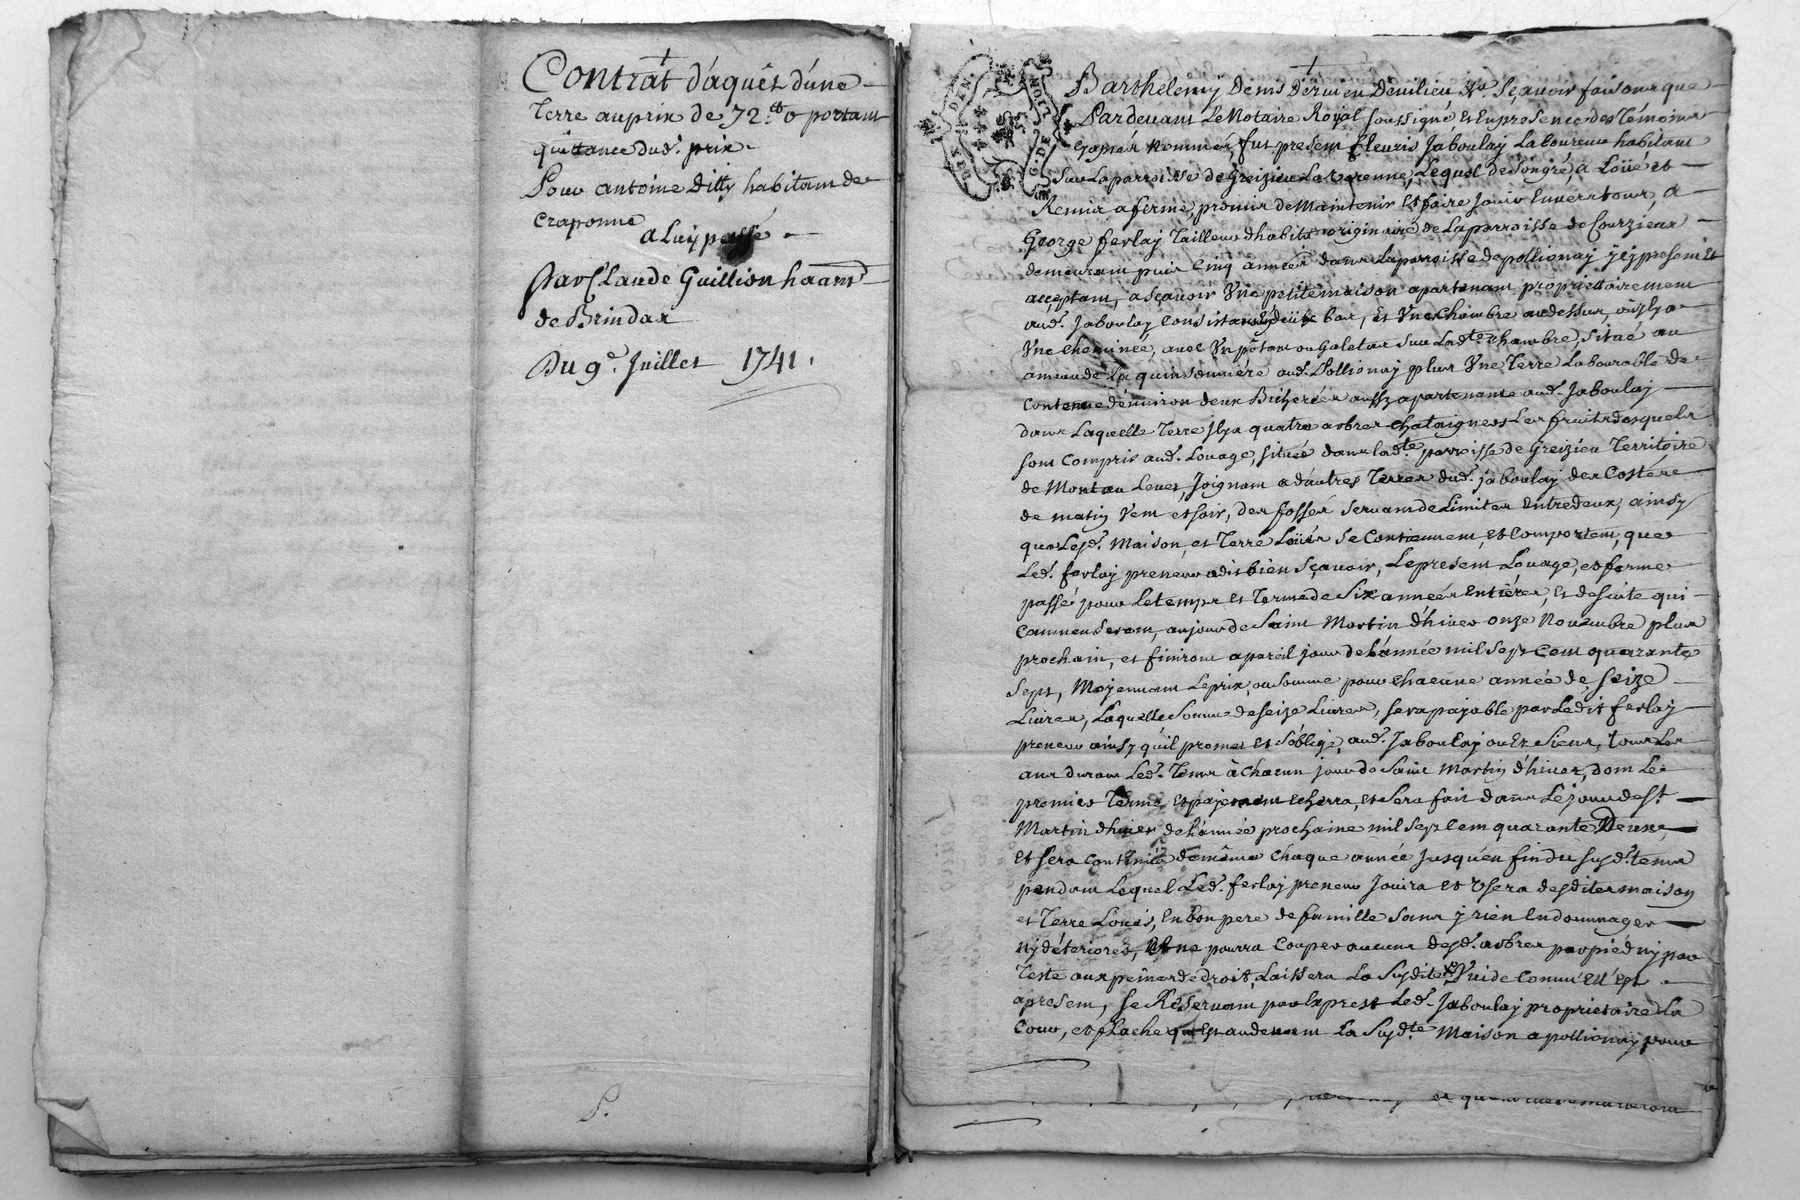 Contrat d'aquêt d'une
Terre au prix de 72.tt 0 portant
quittance dud. prix
Pour antoine dilly habitant de
Craponne
a Luy passé
Par Claude Guillion haant
de Brindas
Du 9e. Juillet 1741.
P.
DEUX DEN.
G. DE LION
Barthelemy Denis Dervieu Devilieu Sçavoir faisons que
Pardevant Le Notaire Royal soussigné et En presence des Témoins
cy aprés Nommés, fut present fleuris Jaboulay Laboureur habitant
Sur La parroisse de Greizieu La Varenne, Lequel de Son gré, a Loüé et
Remis a ferme, promis de Maintenir et faire Jouir Envers tous, a
George ferlay Tailleur d'habits originaire de La parroisse de Courzieux
demeurant puis Cinq années dans La parroisse de pollionay jcy present et
acceptant, a Sçavoir Vne petite maison apartenant proprietairement
aud. Jaboulay Consistant bas, et Vne Chambre au dessus, ou jl ya
Vne Cheminée, avec Vn ou Galetas Sur Ladte. chambre, Situé au
aud. Pollionay plus Vne Terre Labourable de
Contenüe d'environ deux Bicherées aussy apartenante aud. Jaboulay
dans Laquelle Terre jl ya quatre arbres chataigners Les fruits desquels
sont Compris aud. Louage, Située dans ladte. parroisse de Greizieu Territoire
de Joignant a d'autres Terres dud. jaboulay des Costés de
de matin Vent et soir, des fossés Servant de Limites Entredeux, ainsy
que Lesd. Maison, et Terre Loüés Se Contiennent, et Comportent, que
Led. ferlay preneur a dit bien Sçavoir, Le present Louage, et ferme
passé pour Le temps et Terme de Six années Entiéres, et de suite qui
Commenseront, au jour de Saint Martin d'hiver onze Novembre plus
prochain, et finiront a pareil jour de L'année mil Sept Cent quarante
Sept, Moyennant Le prix, ou Somme pour chacune année de Seize
Livres, Laquelle Somme de seize Livres, sera payable par Ledit ferlay
preneur ainsy qu'il promet et S'oblige, aud. Jaboulay ou Ez Siens, tous Les
ans durant Led. Tems à Chacun jour de Saint Martin d'hiver, dont Le
premier Terme, et payement echerra, et Sera fait dans Le jour de St.
Martin d'hiver de L'année prochaine mil Sept Cent quarante Deux,
et Sera Continué de même Chaque année Jusqu'en fin du susd. tems
pendant Lequel Led. ferlay preneur Jouira et Vsera desdites maison
et Terre Loüés, En bon pere de famille Sans y rien Endommager
Ny détériorer, Et ne pourra Couper aucuns desd. arbres par pied ny par
Teste aux peines de droit, Laissera La Susdite Vuide Comm'Ell'est
apresent, Se Réservant par Exprest Led. Jaboulay proprietaire La
Cour, et place qui Est au devant La Susdte. Maison a pollionay pour